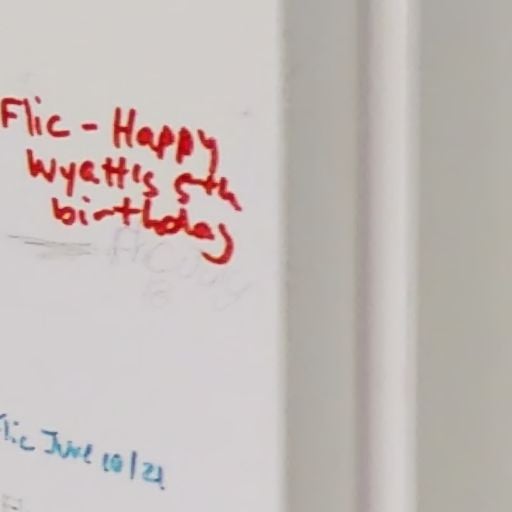 Flic - Happy
Wyatt's 5th
birthday
Flic June 10/21